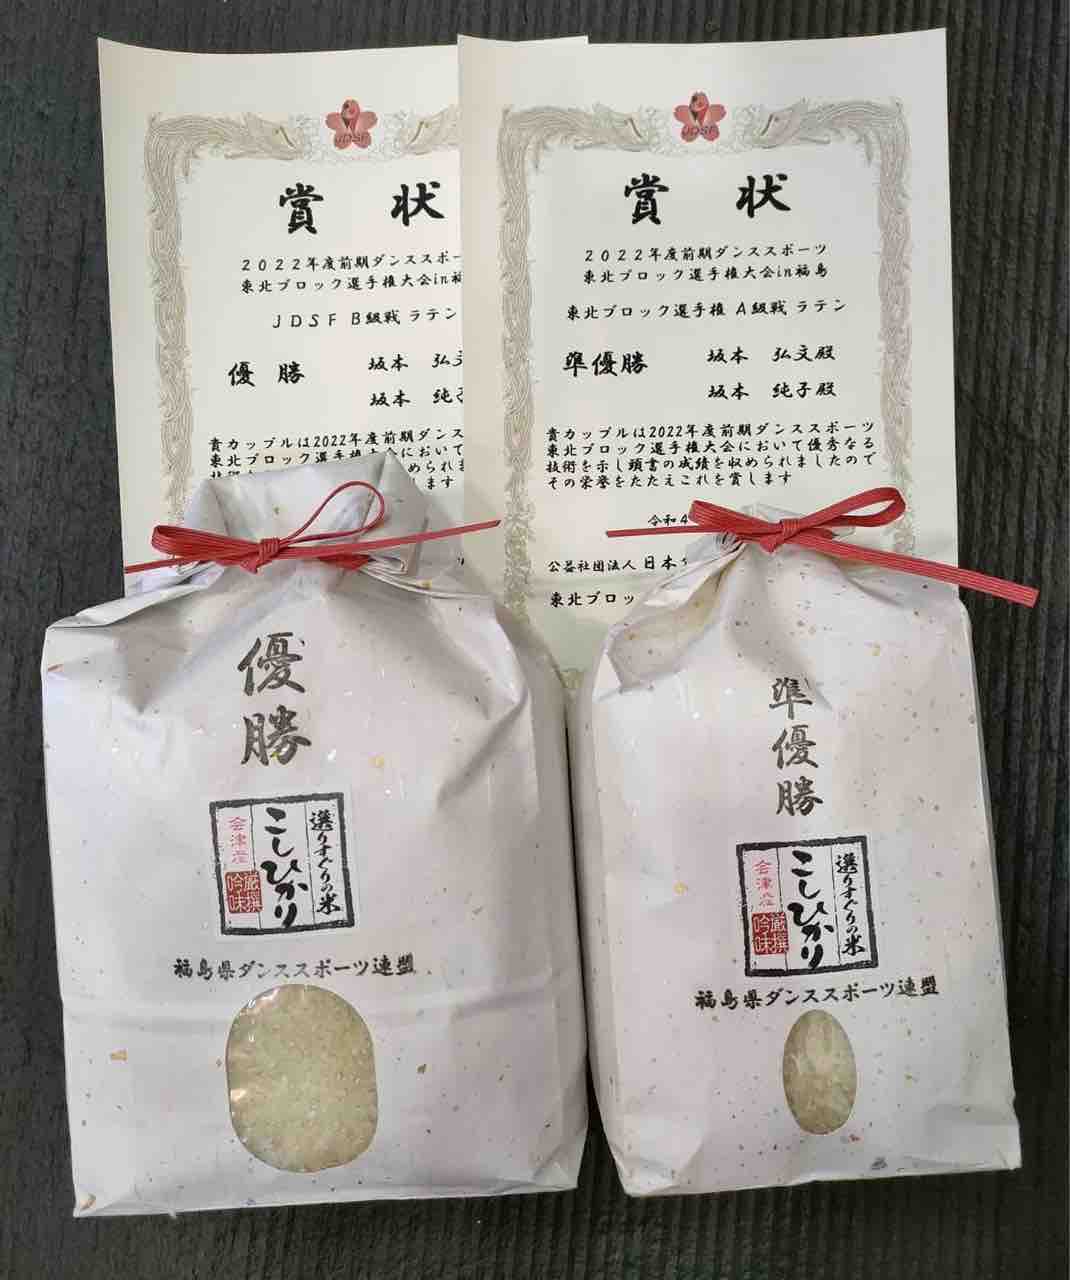 JDSF
賞状
2022年度前期ダンススポー
東北ブロック選手権大会in福
JDSF B級戦 ラテン
優勝
坂本 弘文
坂本 純子
貴カップルは2022年度前期ダンス
東北ブロック選手権大会において
められま
します
JDSF
賞状
2022年度前期ダンススポーツ
東北ブロック選手権大会in福島
東北ブロック選手権 A級戦 ラテン
準優勝
坂本 弘文殿
坂本 純子殿
貴カップルは2022年度前期ダンススポーツ
東北ブロック選手権大会において優秀なる
技術を示し頭書の成績を収められましたので
その栄誉をたたえこれを賞します
令和4
公益社団法人 日本
東北ブロッ
優勝
選りすぐりの米
こしひかり
会津産
厳撰
吟味
福島県ダンススポーツ連盟
準優勝
選りすぐりの米
こしひかり
会津産
厳撰
吟味
福島県ダンススポーツ連盟